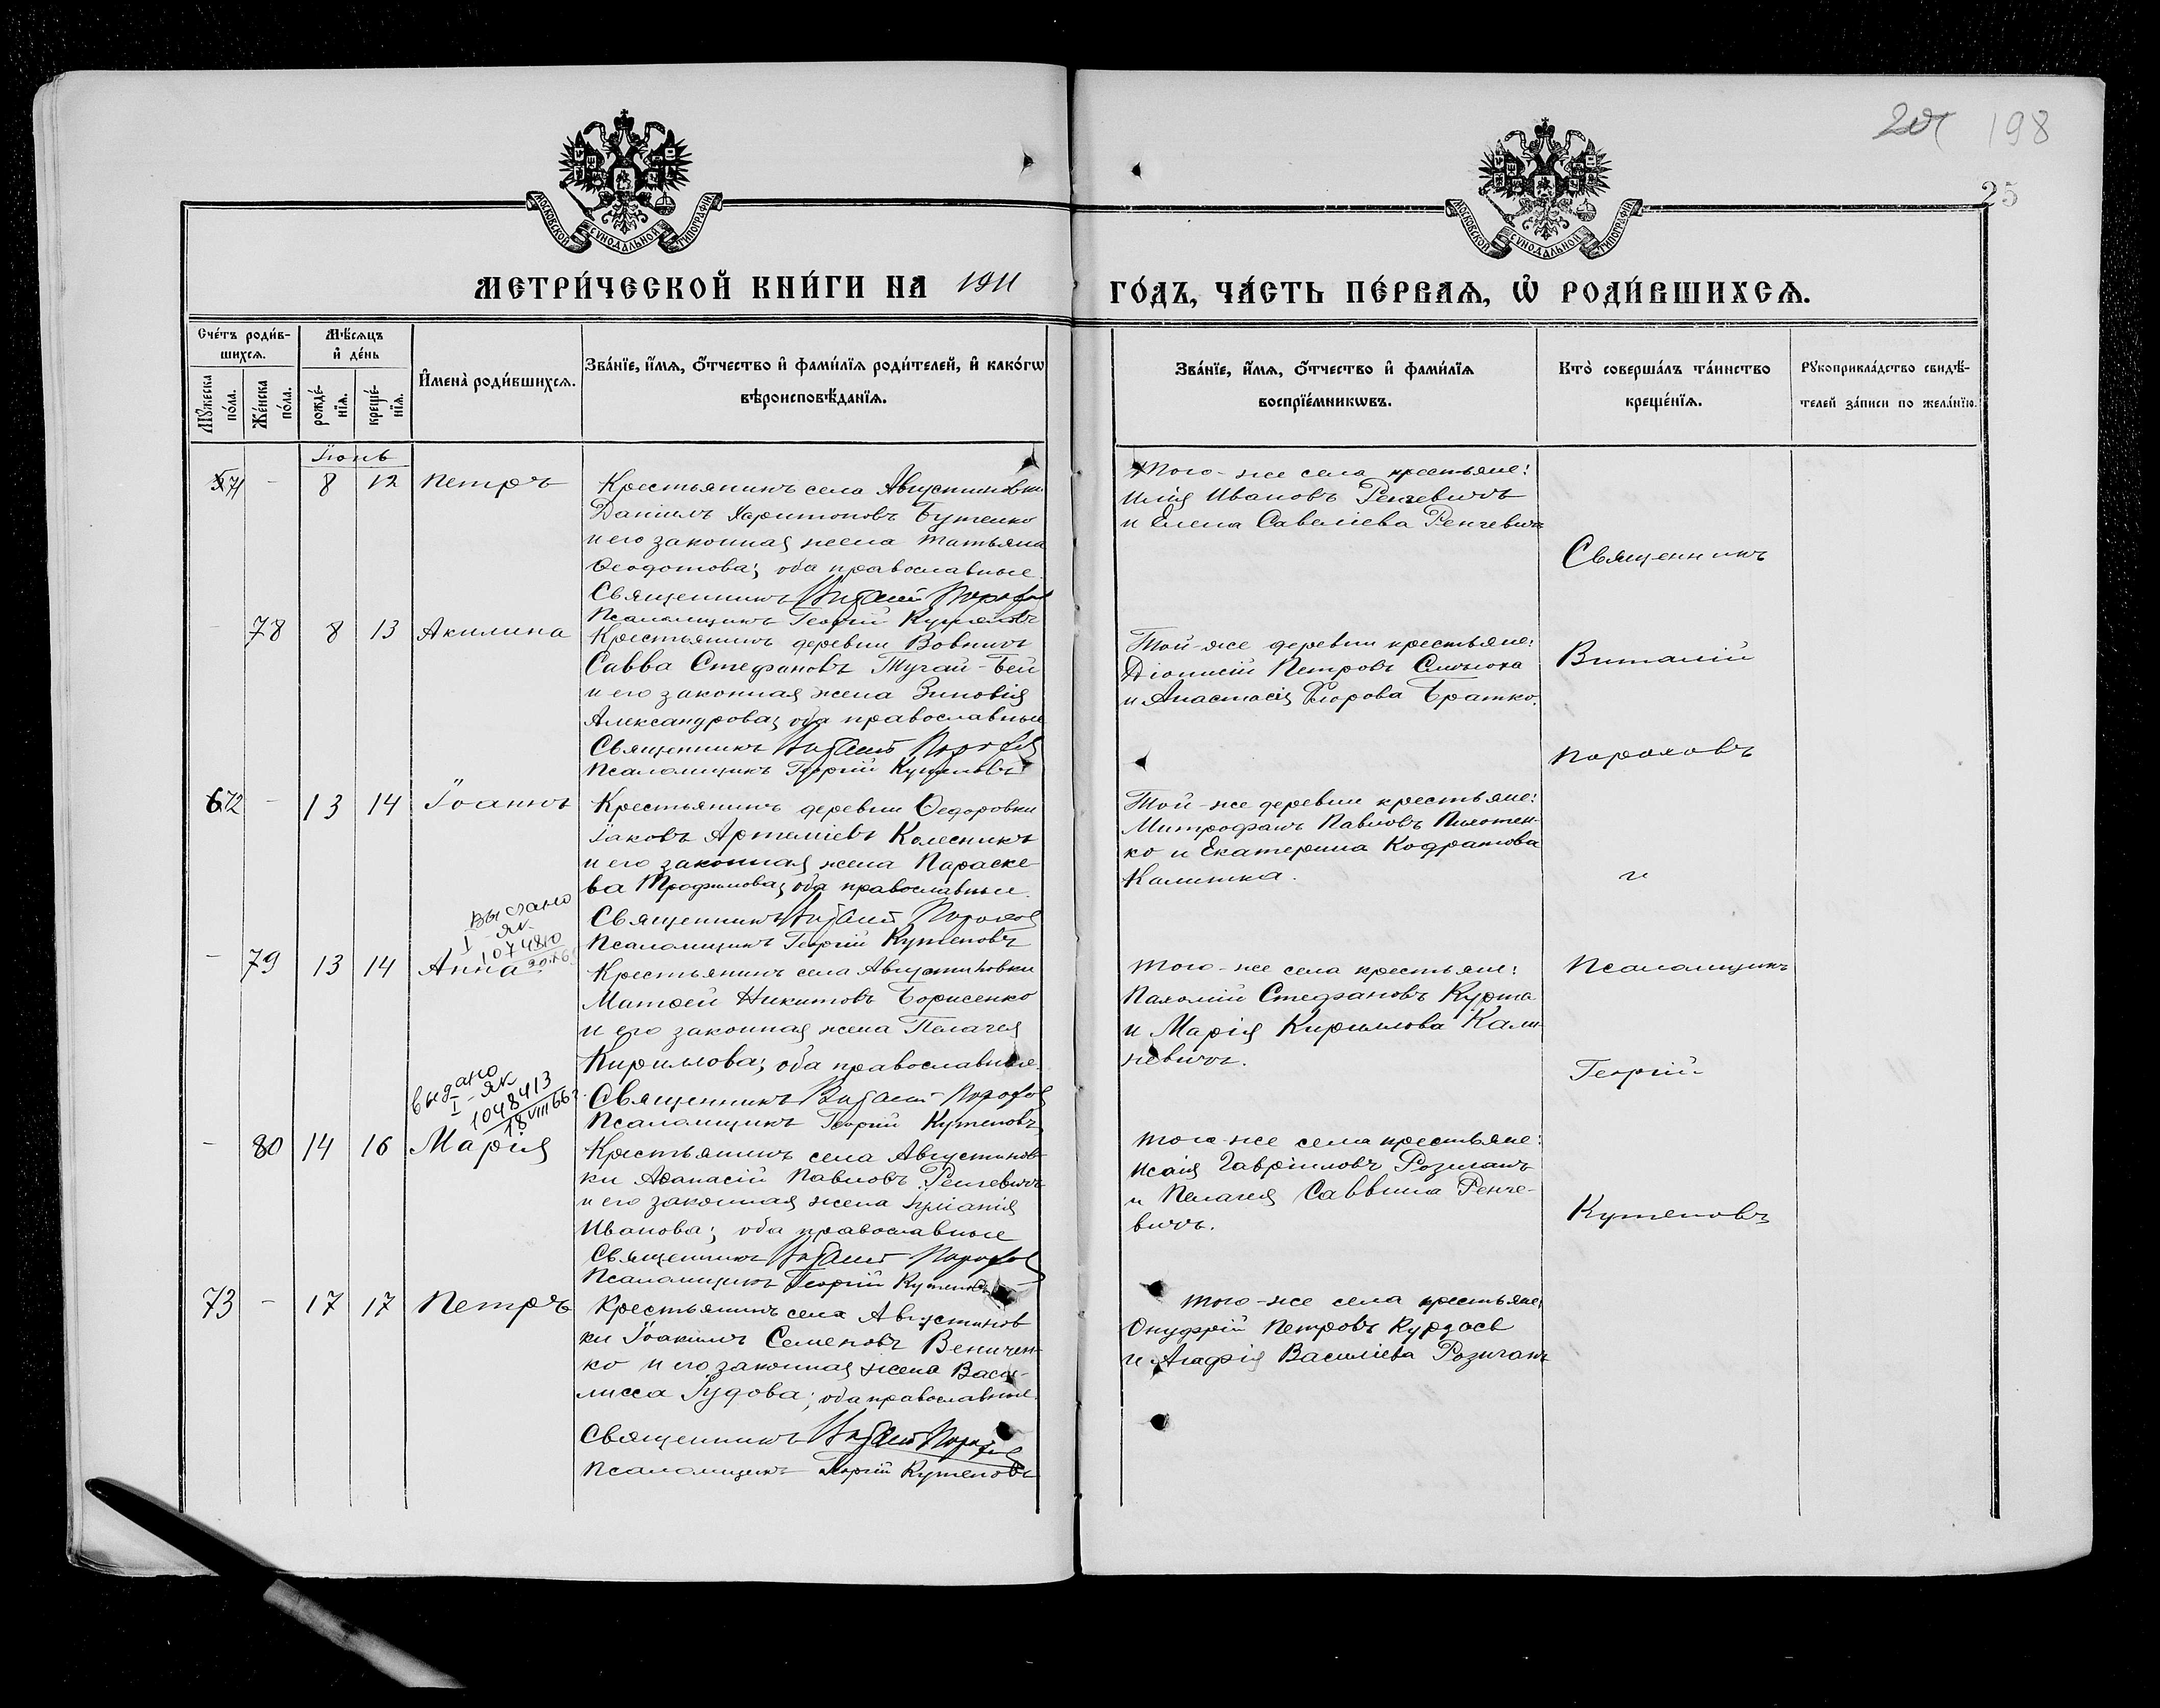 198
25
МОСКОВСКОЙ СѴНОДАЛЬНОЙ ТИПОГРАФІИ
МОСКОВСКОЙ СѴНОДАЛЬНОЙ ТИПОГРАФІИ
МЕТРИ́ЧЕСКОЙ КНИ́ГИ НА 1911 ГО́ДЪ, ЧА́СТЬ ПЕ́РВАѦ, Ѡ҆ РОДИ́ВШИХСѦ.
Сче́тъ роди́в-
шихсѧ.
Мꙋ́жеска по́ла.
Же́нска по́ла.
Мѣ́сѧцъ и҆ де́нь
рожде́-нїѧ.
креще́-нїѧ.
И҆мена̀ роди́вшихсѧ.
Зва́нїе, и҆́мѧ, ѻ҆́тчество и҆ фами́лїѧ роди́телей, и҆ како́гѡ
вѣроисповѣ́данїѧ.
Зва́нїе, и҆́мѧ, ѻ҆́тчество и҆ фами́лїѧ
воспрїе́мникѡвъ.
Кто̀ соверша́лъ та́инство
креще́нїѧ.
Рꙋкоприкла́дство свидѣ́-
телей за́писи по жела́нїю.
Іюнь
71 - 8 12 Петръ
Крестьянинъ села Августиновки
Даніилъ Харитоновъ Бутенко
и его законная жена Татьяна
Ѳеодотова; оба православные.
Священникъ Виталій Пороховъ
Псаломщикъ Георгій Кутеповъ
Того-же села крестьяне:
Илія Ивановъ Ренчевичъ
и Елена Савеліева Ренчевичъ
- 78 8 13 Акилина
Крестьянинъ деревни Вовнигъ
Савва Стефановъ Тугай-Бей
и его законная жена Зиновія
Александрова; оба православные
Священникъ Виталій Пороховъ
Псаломщикъ Георгій Кутеповъ
Той-же деревни крестьяне:
Діонисій Петровъ
и Анастасія Братко.
72 - 13 14 Іоаннъ
Крестьянинъ деревни Ѳедоровки
Іаковъ Артеміевъ Колесникъ
и его законная жена Параске-
ва Трофимова; оба православные.
Священникъ Виталій Пороховъ
Псаломщикъ Георгій Кутеповъ
Той-же деревни крестьяне:
Митрофанъ Павловъ Пилотен-
ко и Екатерина Кодратова
Калитка.
Выслано
I ЯК
1074810
- 79 13 14 Анна
Крестьянинъ села Августиновки
Матѳей Никитовъ Борисенко
и его законная жена Пелагея
Кириллова; оба православные.
Священникъ Виталій Пороховъ
Псаломщикъ Георгій Кутеповъ
Того-же села крестьяне:
Пахомій Стефановъ Курта
и Марія Кириллова Кали-
невичъ.
выдано
I-ЯК
1048413
18 VIII 66г
- 80 14 16 Марія
Крестьянинъ села Августинов-
ки Аѳанасій Павловъ Ренчевичъ
и его законная жена Іуліанія
Иванова; оба православные
Священникъ Виталій Пороховъ
Псаломщикъ Георгій Кутеповъ
Того-же села крестьяне:
Исаія Гавріиловъ Розиганъ
и Пелагея Саввина Ренче-
вичъ.
73 - 17 17 Петръ
Крестьянинъ села Августинов
ки Іоакимъ Семеновъ Величен-
ко и его законная жена Васи-
лисса Іудова; оба православные.
Священникъ Виталій Пороховъ
Псаломщикъ Георгій Кутеповъ
Того-же села крестьяне:
Онуфрій Петровъ Курдась
и Агафія Василіева Розиганъ
Священникъ
Виталій
Пороховъ
и
Псаломщикъ
Георгій
Кутеповъ